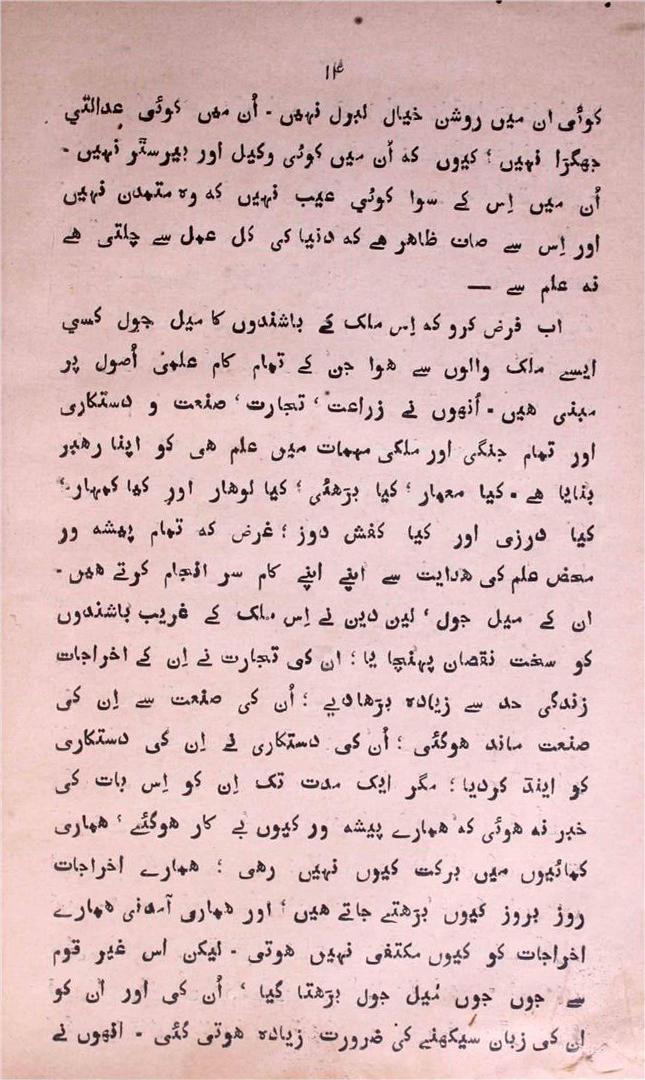 ۱۴
کوئی ان میں روشن خیال لبرل نہیں - اُن میں کوئی عدالتي
جھگڑا نہیں ؛ کیوں که اُن میں کوئی وکیل اور بیرسٹر نہیں -
اُن میں اِس کے سوا کوئي عیب نہیں که وہ متمدن نہیں
اور اِس سے صاف ظاہر ہے که دنیا کی کل عمل سے چلتی ہے
نه علم سے —
اب فرض کرو که اِس ملک کے باشندوں کا میل جول کسي
ایسے ملک والوں سے ہوا جن کے تمام کام علمی اُصول پر
مبنی ہیں - اُنہوں نے زراعت ‘ تجارت ‘ صنعت و دستکاری
اور تمام جنگی اور ملکی مہمات میں علم ہی کو اپنا رہبر
بنایا ہے - کیا معمار ؛ کیا بڑھئی ؛ کیا لوہار اور کیا کمہار ‘
کیا درزی اور کیا کفش دوز ؛ غرض که تمام پیشه ور
محض علم کی ہدایت سے اپنے اپنے کام سر انجام کرتے ہیں -
ان کے میل جول ‘ لین دین نے اِس ملک کے غریب باشندوں
کو سخت نقصان پہنچا یا ؛ ان کی تجارت نے اِن کے اخراجات
زندگی حد سے زیادہ بڑھا دیے ؛ اُن کی صنعت سے اِن کی
صنعت ماند ہوگئی ؛ اُن کی دستکاری نے اِن کی دستکاری
کو اینڈ کردیا ؛ مگر ایک مدت تک اِن کو اِس بات کی
خبر نه ہوئی که ہمارے پیشه ور کیوں بے کار ہوگئے ‘ ہماری
کمائیوں میں برکت کیوں نہیں رہی ؛ ہمارے اخراجات
روز بروز کیوں بڑھتے جاتے ہیں ؛ اور ہماری آمدنی ہمارے
اخراجات کو کیوں مکتفی نہیں ہوتی - لیکن اس غیر قوم
سے جوں جوں میل جول بڑھتا گیا ‘ اُن کی اور ان کو
اِن کی زبان سیکھنے کی ضرورت زیادہ ہوتی گئی - انہوں نے